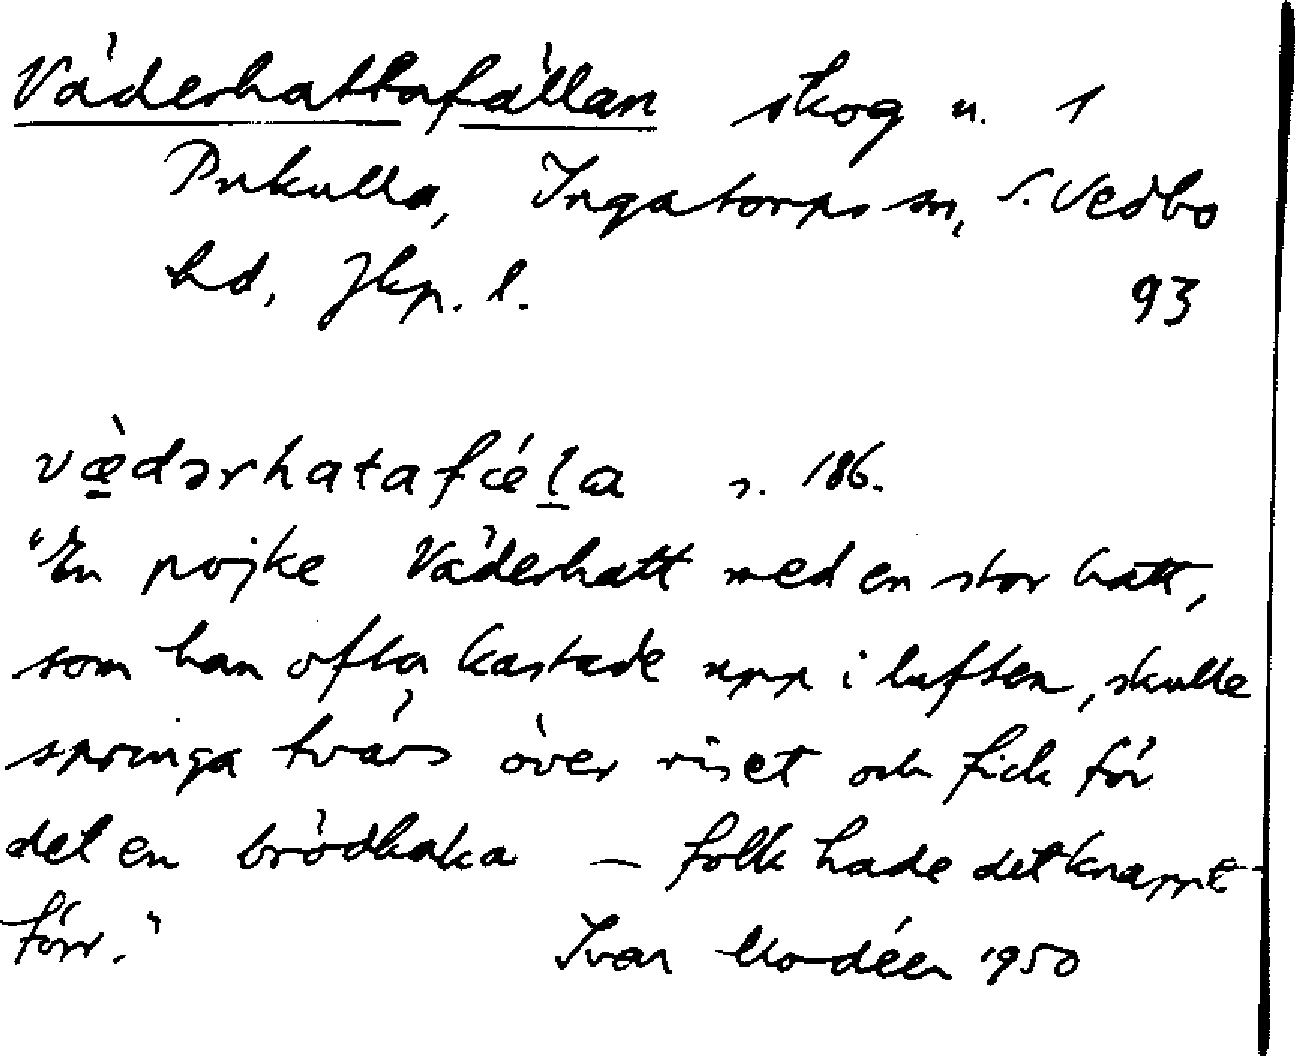 Väderhattafällan skog u. 1
Pukulla, Ingatorps sn, S. Vedbo
hd, Jkp. l. 93
væ̀dərhatafǽḷa s. 186.
"En pojke Väderhatt med en stor hatt,
som han ofta kastade upp i luften, skulle
springa tvärs över riset och fick för
det en brödkaka — folk hade det knappt
förr." Ivar Modéer 1950